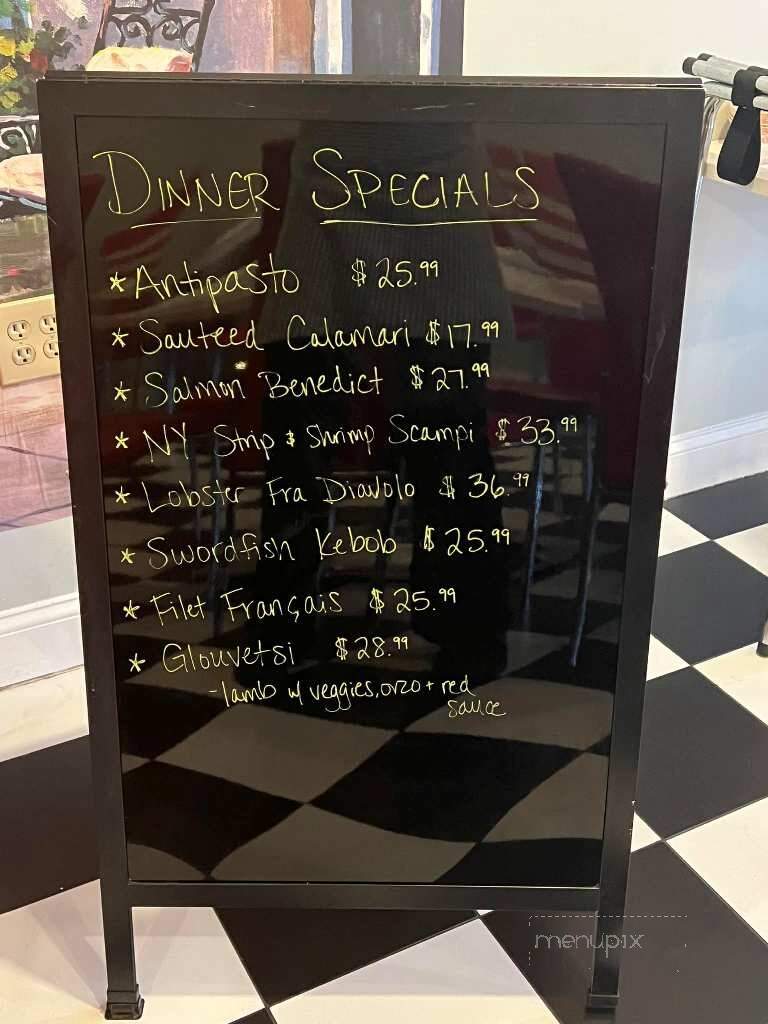 DINNER SPECIALS
* Antipasto $25.99
* Sauteed Calamari $17.99
* Salmon Benedict $27.99
* NY Strip & Shrimp Scampi $33.99
* Lobster Fra Diavolo $36.99
* Swordfish Kebob $25.99
* Filet Français $25.99
* Glouvetsi $28.99
- lamb w/ veggies, orzo + red
sauce
menupix